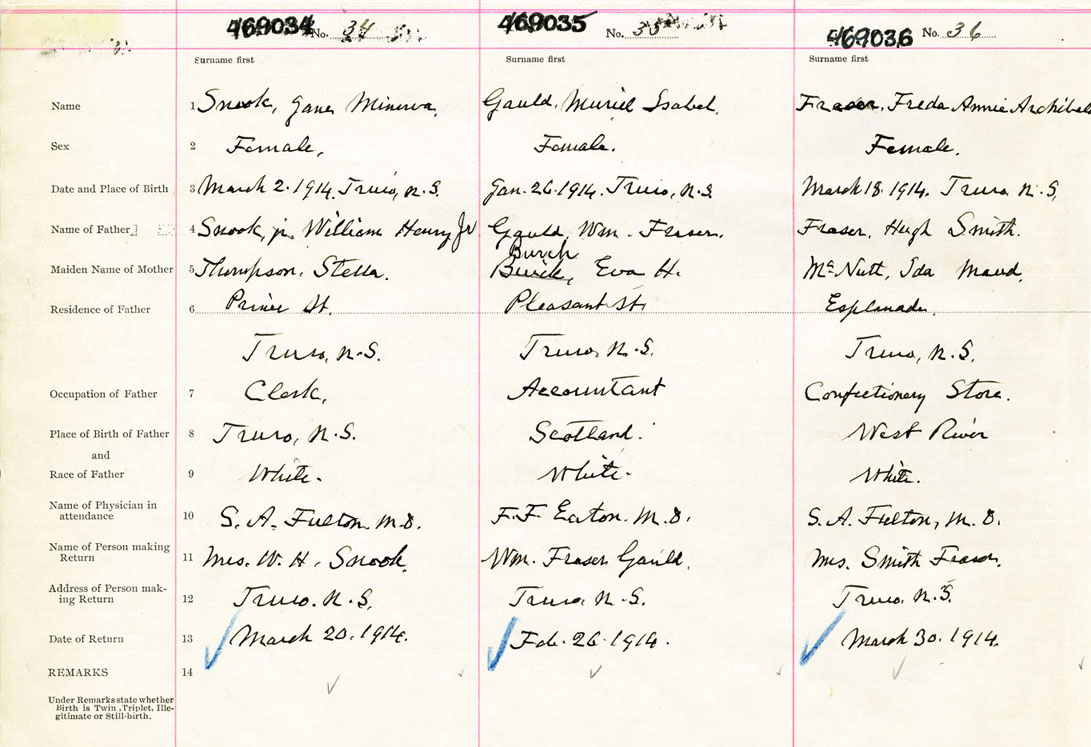 469034 No. 34 469035 No. 35 469036 No. 36
Surname first Surname first Surname first
Name 1 Snook, Jane Minerva, Gauld, Muriel Isabel. Fraser, Freda Annie Archibald
Sex 2 Female, Female. Female.
Date and Place of Birth 3 March 2. 1914, Truro, N.S. Jan. 26. 1914. Truro, N.S. March 18. 1914. Truro N.S,
Name of Father 4 Snook, jr, William Henry Jr Gauld, Wm. Fraser. Fraser, Hugh Smith.
Burch
Maiden Name of Mother 5 Thompson, Stella. Eva H. McNutt, Ida Maud,
Residence of Father 6 Prince St. Pleasant St. Esplanade.
Truro, N.S. Truro, N.S. Truro, N.S.
Occupation of Father 7 Clerk, Accountant Confectionery Store.
Place of Birth of Father 8 Truro, N.S. Scotland. West River
and
Race of Father 9 White. White. White.
Name of Physician in
attendance 10 S. A. Fulton, M.D. F. F. Eaton. M.D. S. A. Fulton, M.D.
Name of Person making
Return 11 Mrs. W. H. Snook, Wm. Fraser Gauld. Mrs. Smith Fraser.
Address of Person mak-
ing Return 12 Truro. N.S, Truro, N.S. Truro, N.S.
Date of Return 13 March 20. 1914. Feb. 26. 1914. March 30. 1914.
REMARKS 14
Under Remarks state whether
Birth is Twin, Triplet, Ille-
gitimate or Still-birth.